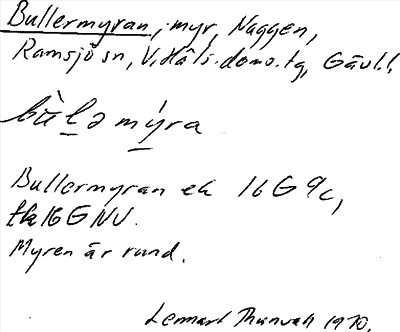 Bullermyran, myr, Naggen,
Ramsjö sn, V. Häls. doms. tg, Gävl. l.
bùlə mýra
Bullermyran ek 16G 9c,
tk 16G NV.
Myren är rund.
Lennart 1970.